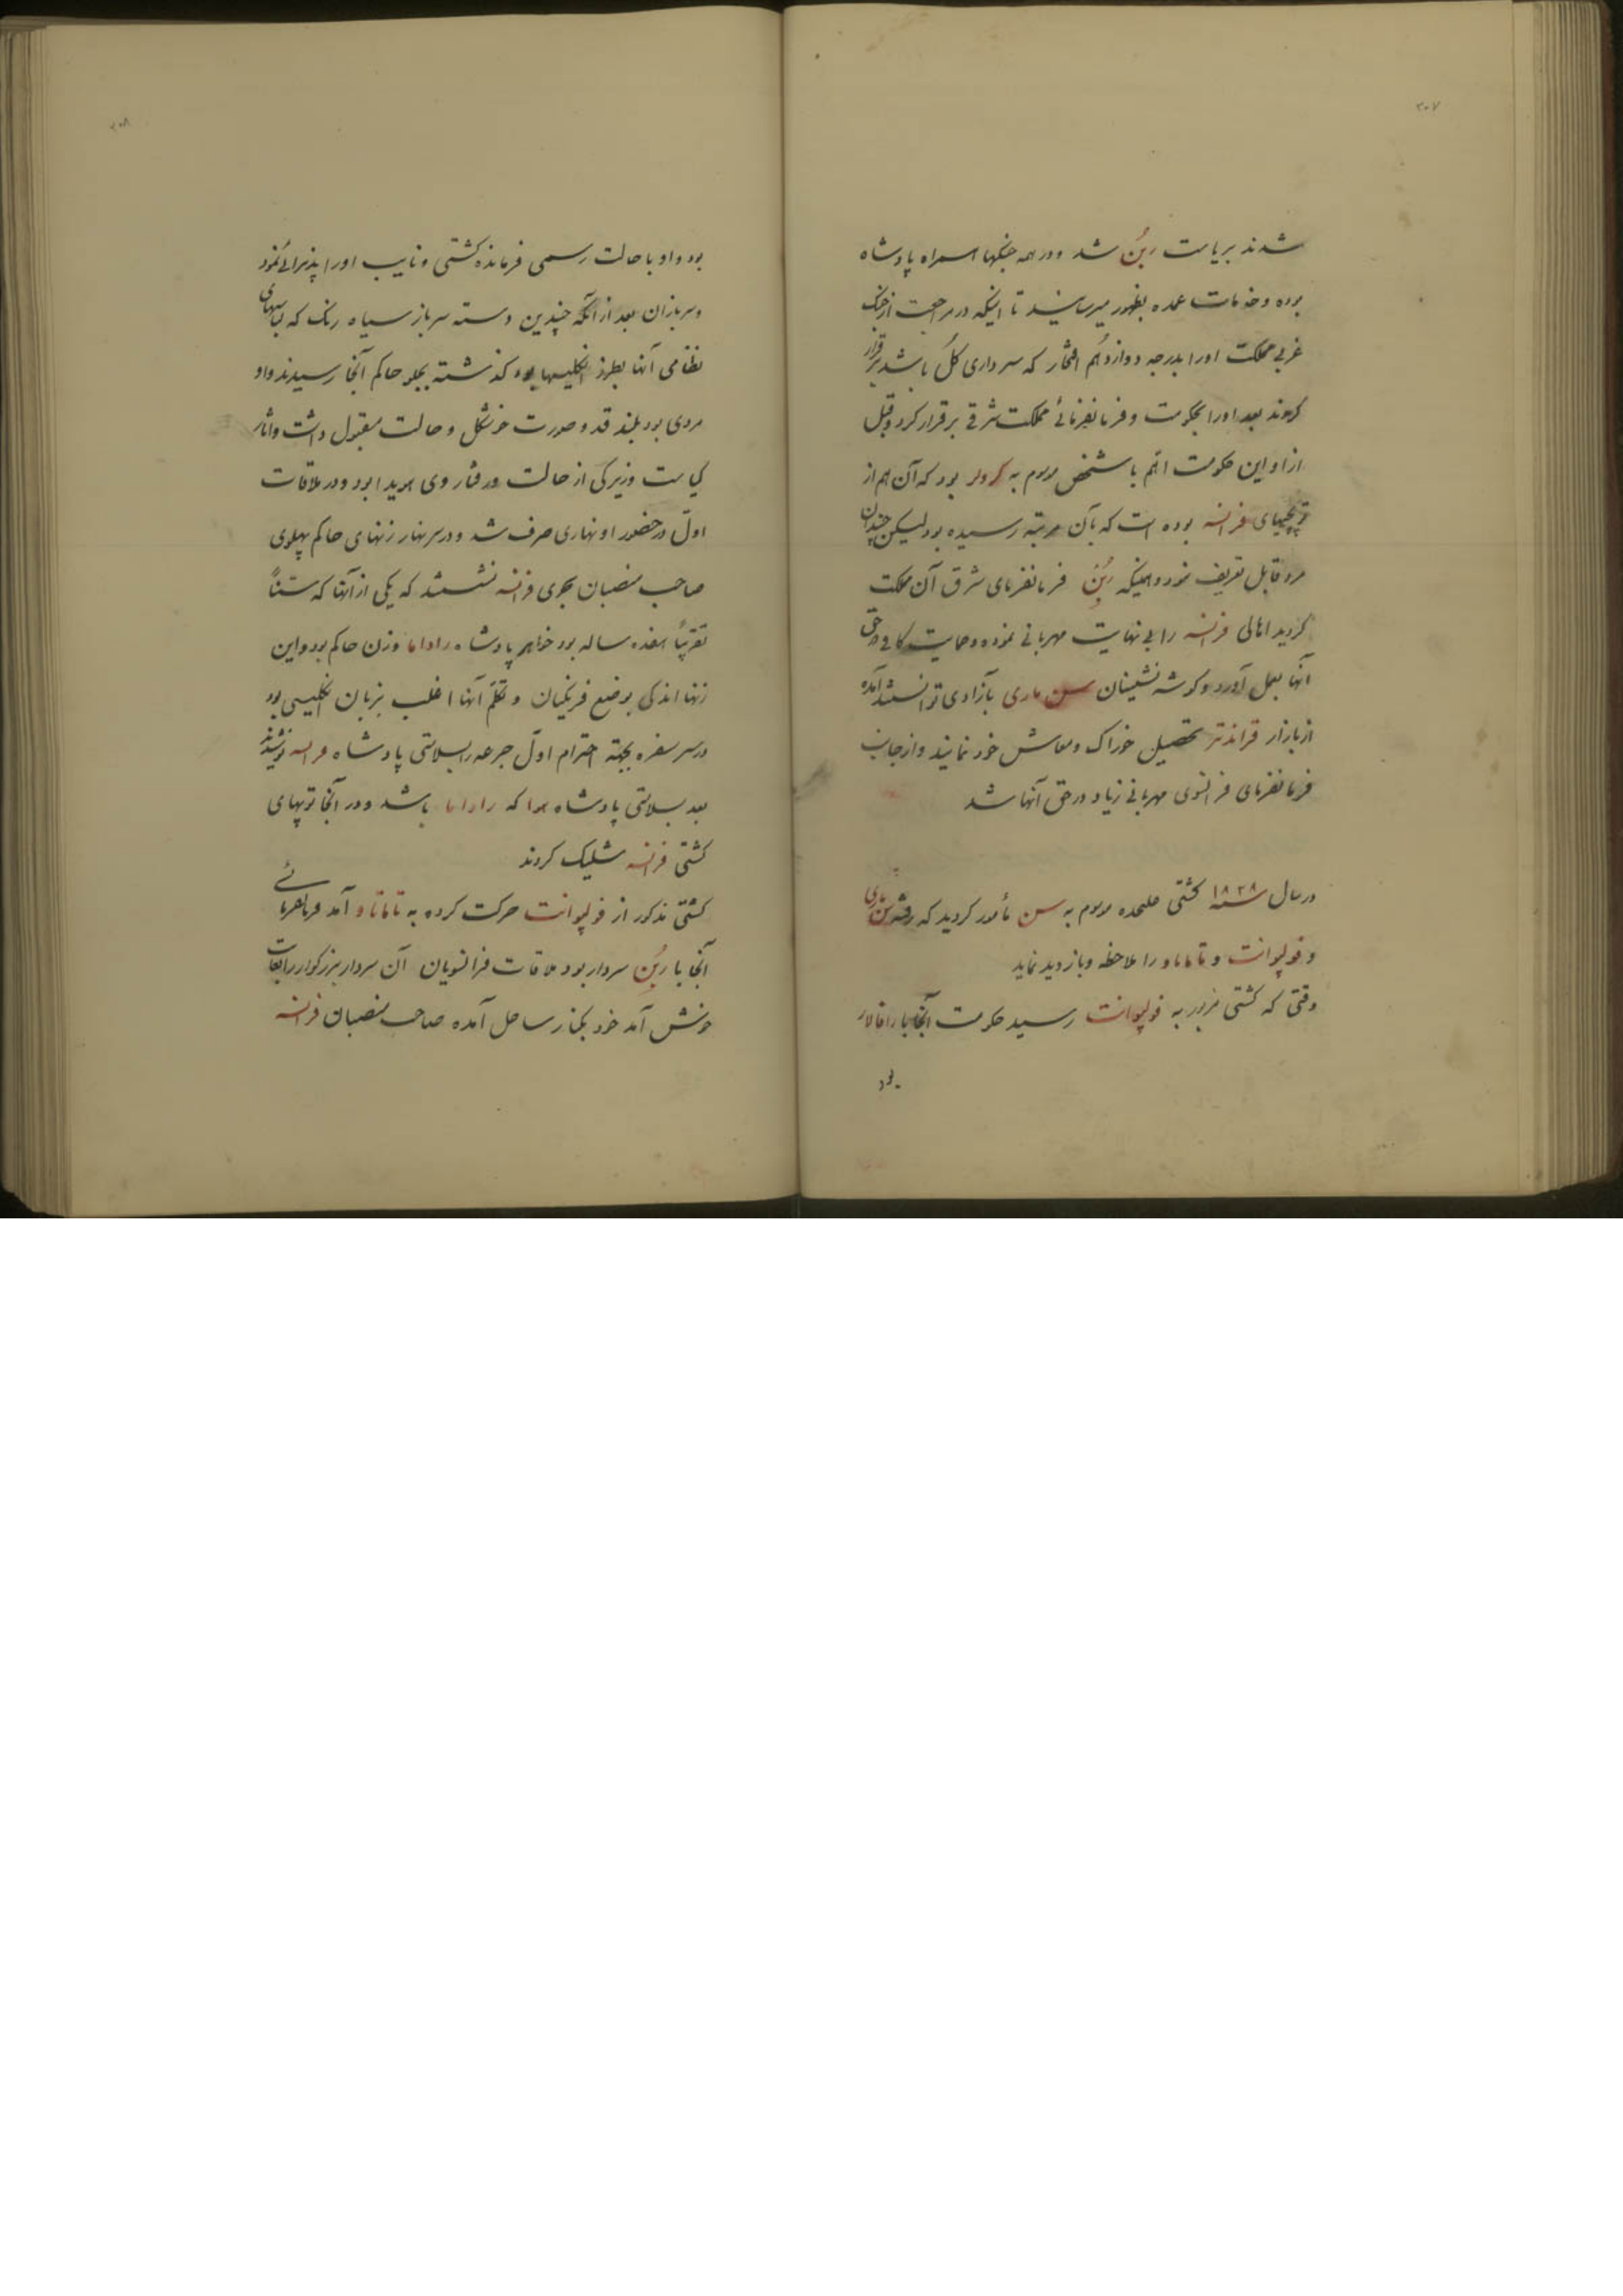 ۲۰۷
شدند بریاست ربُن شد و در همه جنگها همراه پادشاه
بوده و خدمات عمده بظهور میرسانید تا اینکه در مراجعت از جنگ
غربی مملکت او را بدرجه دوازدهم افتخار که سرداری کل باشد برقرار
کردند بعد او را بحکومت و فرمانفرمائی مملکت شرقی برقرار کرد و قبل
از او این حکومت اهم با شخص موسوم به کرولر بود که آن هم از
توپچیهای فرانسه بوده است که بآن مرتبه رسیده بود لیکن چندان
مرد قابل تعریف نبود و همینکه ربُن فرمانفرمای شرق آن مملکت
گردید اهالی فرانسه را بی نهایت مهربانی نموده و حمایت کافی در حق
آنها بعمل آورد و گوشه نشینان سن ماری بآزادی توانستند آمده
از بازار فراندتر تحصیل خوراک و معاش خود نمایند و از جانب
فرمانفرمای فرانسوی مهربانی زیاد در حق آنها شد
در سال سنه ۱۸۲۸ کشتی علیحده موسوم به سن مأمور گردید که رفته سن ماری
و فولپوانت و تاماتاو را ملاحظه و بازدید نماید
وقتی که کشتی مزبور به فولپوانت رسید حکومت آنجا با رافالار
بود
۲۰۸
بود و او با حالت رسمی فرمانده کشتی و نایب او را پذیرائی نمود
و سربازان بعد از آنکه چندین دسته سرباز سیاه رنگ که لباسهای
نظامی آنها بطرز انگلیسها بود گذشته بجلو حاکم آنجا رسیدند و او
مردی بود بلند قد و صورت خوشگل و حالت مقبول داشت و آثار
کیاست و زیرکی از حالت و رفتار وی هویدا بود و در ملاقات
اول در حضور او نهاری صرف شد و در سر نهار زنهای حاکم پهلوی
صاحب منصبان بحری فرانسه نشستند که یکی از آنها که سنّاً
تقریباً هفده ساله بود خواهر پادشاه راداما و زن حاکم بود و این
زنها اندکی بوضع فرنگیان و تکلم آنها اغلب بزبان انگلیسی بود
در سر سفره بجهته احترام اول جرعه را بسلامتی پادشاه فرانسه نوشیدند
بعد بسلامتی پادشاه هوا که راداما باشد و در آنجا توپهای
کشتی فرانسه شلیک کردند
کشتی مذکور از فولپوانت حرکت کرده به تاماتاو آمد فرمانفرمائی
آنجا با ربُن سردار بود ملاقات فرانسویان آن سردار بزرگوار را بغایت
خوش آمد خود بکنار ساحل آمده صاحب منصبان فرانسه